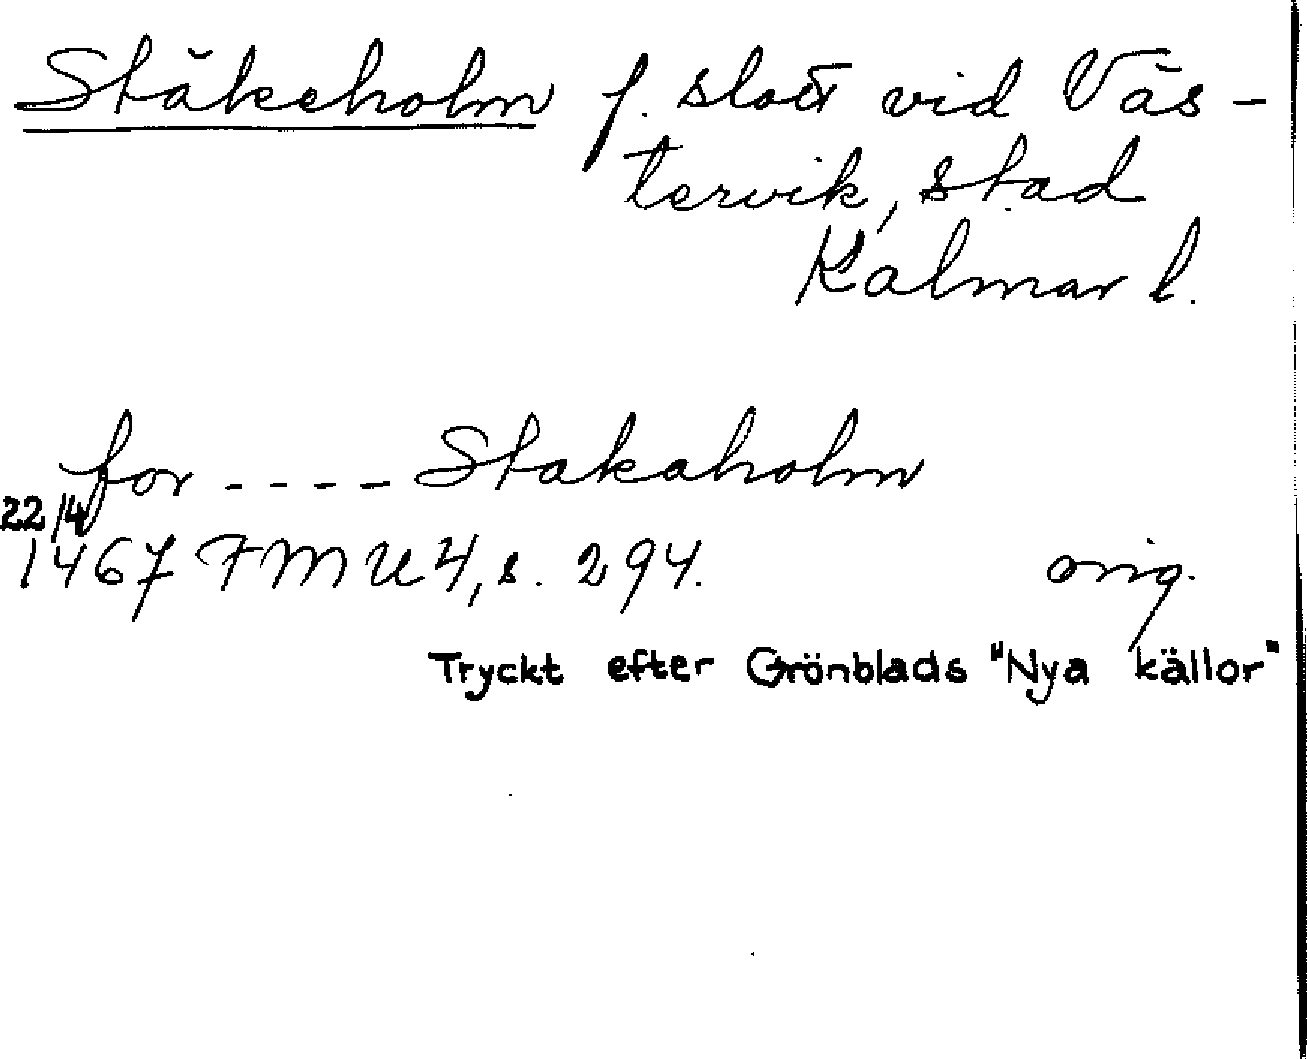 Ståkeholm f. slott vid Väs-
tervik, stad
Kalmar l.
for ---- Stakaholm
22/4
1467 FMU 4, s. 294. orig.
Tryckt efter Grönblads "Nya källor"